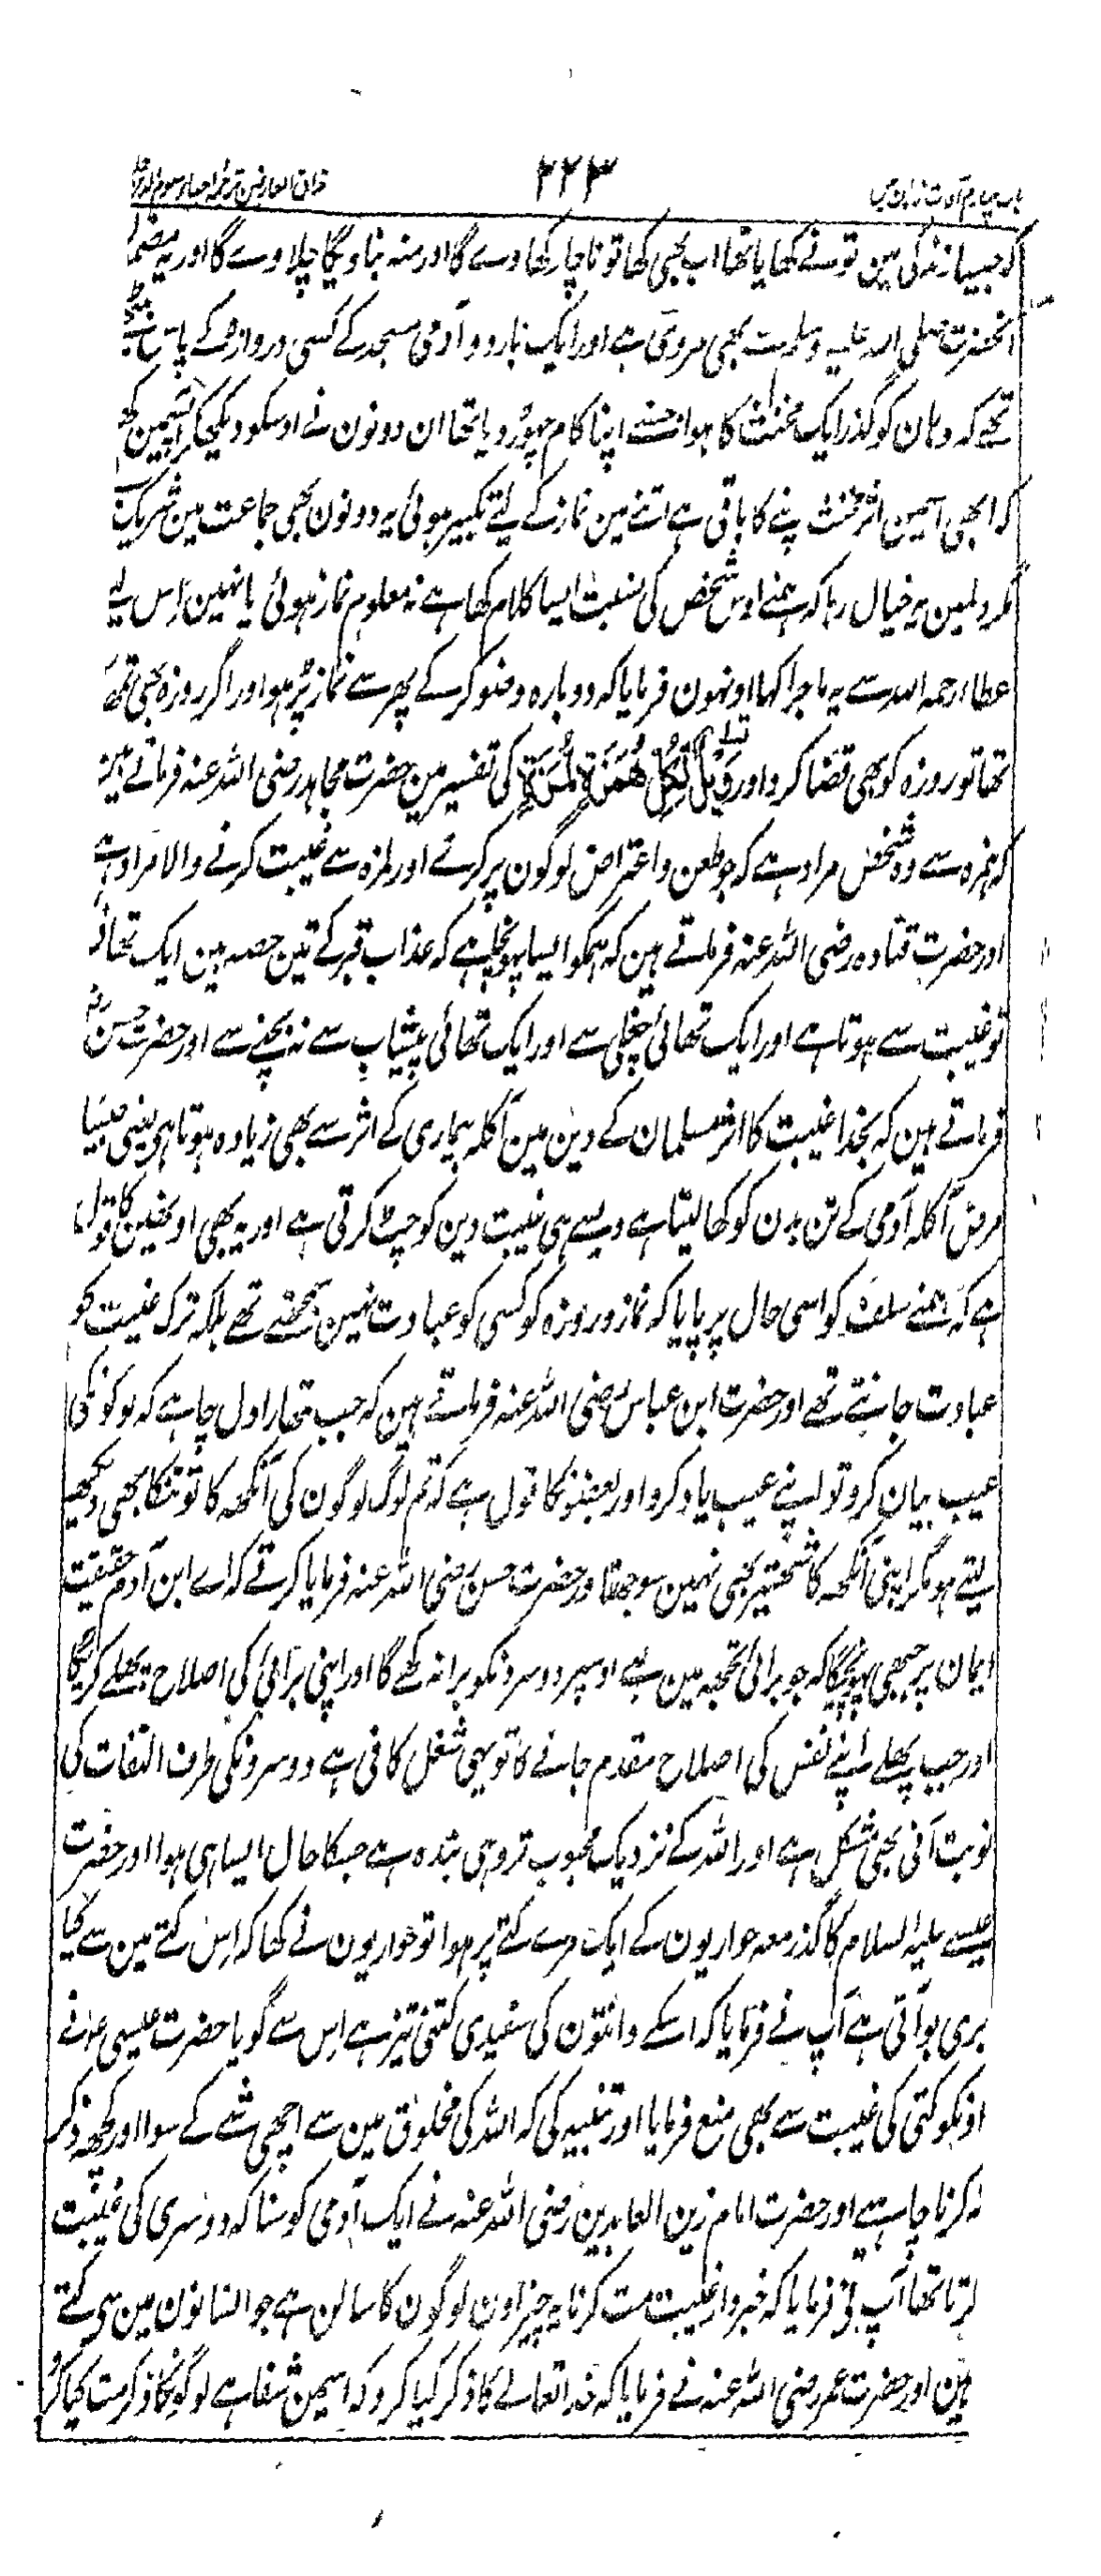 باب چہارم آفات زبان میں ۲۲۳ مذاق العارفین ترجمہ احیاء علوم الدین
کہ جیسا زندگی مین تو نے کھایا تھا اب بھی کھا تو ناچار کھاوے گا اور منہ بناویگا چلاوے گا اور یہ مضمون
آنحضرت صلی اللہ علیہ وسلم سے بھی مروی ہے اور ایک بار دو آدمی مسجد کے کسی دروازہ کے پاس بیٹھے
تھے کہ وہان کو گذر ایک مخنث کا ہوا جسنے اپنا کام چھوڑ دیا تھا ان دونون نے اوسکو دیکھکر آپسمین کہا
کہ ابھی اسمین اثر مخنث پنے کا باقی ہے اتنے مین نماز کے لیے تکبیر ہوئی یہ دونون بھی جماعت مین شریک
مگر دلمین یہ خیال رہا کہ ہمنے اوس شخص کی نسبت ایسا کلام کہا ہے نہ معلوم نماز ہوئی یا نہین اس لیے
عطا رحمہ اللہ سے یہ ماجرا کہا اونہون فرمایا کہ دوبارہ وضو کر کے پھر سے نماز پڑہو اور اگر روزہ بھی تمھارا
تھا تو روزہ کو بھی قضا کرو اور وَیْلٌ لِّکُلِّ ھُمَزَۃٍ لُّمَزَۃٍ کی تفسیر مین حضرت مجاہد رضی اللہ عنہ فرماتے ہین
کہ ہمزہ سے وہ شخص مراد ہے کہ جو طعن و اعتراض لوگون پر کرے اور لمزہ سے غیبت کرنے والا مراد ہے
اور حضرت قتادہ رضی اللہ عنہ فرماتے ہین کہ ہمکو ایسا پہونچا ہے کہ عذاب قبر کے تین حصہ ہین ایک تھائی
تو غیبت سے ہوتا ہے اور ایک تھائی چغلی سے اور ایک تھائی پیشاب سے نہ بچنے سے اور حضرت حسن رض
فرماتے ہین کہ بخدا غیبت کا اثر مسلمان کے دین مین آکلہ بیماری کے اثر سے بھی زیادہ ہوتا ہی یعنی جیسا
مرض آکلہ آدمی کے تن بدن کو کھا لیتا ہے ویسے ہی غیبت دین کو چٹ کرتی ہے اور یہ بھی اونھین کا قول
ہے کہ ہمنے سلف کو اسی حال پر پایا کہ نماز و روزہ کو کسی کو عبادت نہین سمجھتے تھے بلکہ ترک غیبت کو
عبادت جانتے تھے اور حضرت ابن عباس رضی اللہ عنہ فرماتے ہین کہ جب تمھارا دل چاہے کہ لوگونکی
عیب بیان کرو تو اپنے عیب یاد کرو اور بعضونکا قول ہے کہ تم لوگ لوگون کی آنکھہ کا تو تنکا بھی دیکھہ
لیتے ہو مگر اپنی آنکھہ کا شھتیر بھی نہین سوجھتا اور حضرت حسن رضی اللہ عنہ فرمایا کرتے کہ اے ابن آدم حقیقت
ایمان پر جبھی پہونچیگا کہ جو برائی تجھہ مین ہے اوسپر دوسرونکو برا نہ کہے گا اور اپنی برائی کی اصلاح پہلے کریگا
اور جب پہلے اپنے نفس کی اصلاح مقدم جانے گا تو یہی شغل کافی ہے دوسرونکی طرف التفات کی
نوبت آنی بھی مشکل ہے اور اللہ کے نزدیک محبوب تر وہی بندہ ہے جسکا حال ایسا ہی ہوا اور حضرت
عیسے علیہ السلام کا گذر معہ حواریون کے ایک مرے کتے پر ہوا تو حواریون نے کھا کہ اس کتے مین سے کیا
بری بو آتی ہے آپ نے فرمایا کہ اسکے دانتون کی سفیدی کتنی تیز ہے اس سے گویا حضرت عیسی ع نے
اونکو کتی کی غیبت سے بھی منع فرمایا اور تنبیہ کی کہ اللہ کی مخلوق مین سے اچھی شے کے سوا اور کچھہ ذکر
نہ کرنا چاہیے اور حضرت امام زین العابدین رضی اللہ عنہ نے ایک آدمی کو سنا کہ دوسری کی غیبت
کرتا تھا آپ نے فرمایا کہ خبردار غیبت مت کرنا یہ چیز اون لوگون کا سالن ہے جو انسانون مین سی کتے
ہین اور حضرت عمر رضی اللہ عنہ نے فرمایا کہ خدا تعالے کا ذکر کیا کرو کہ اسمین شفا ہے لوگونکا ذکر مت کیا کرو